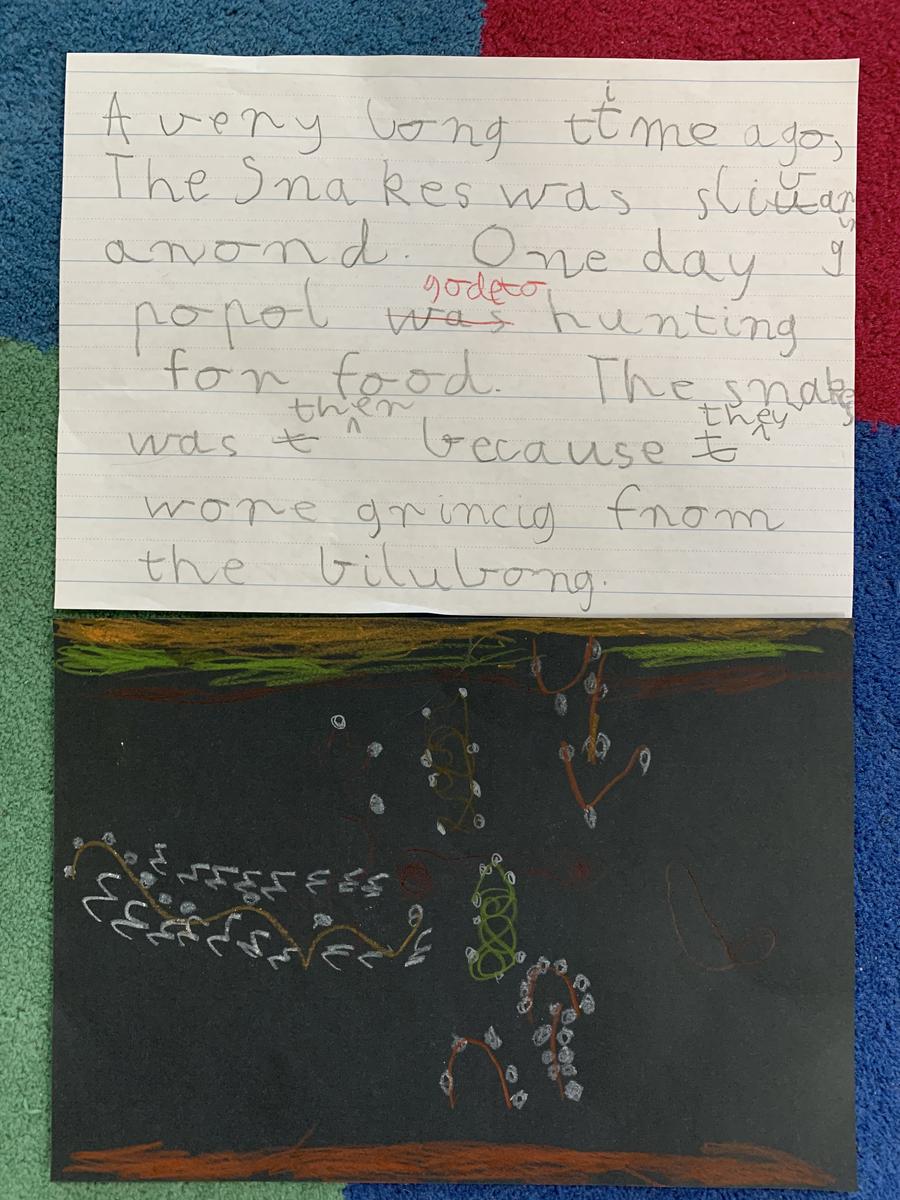 A very long time ago,
The Snakes was slivering
arond. One day
popol godeto hunting
for food. The snakes
was ther because they
wore grincig from
the bilubong.